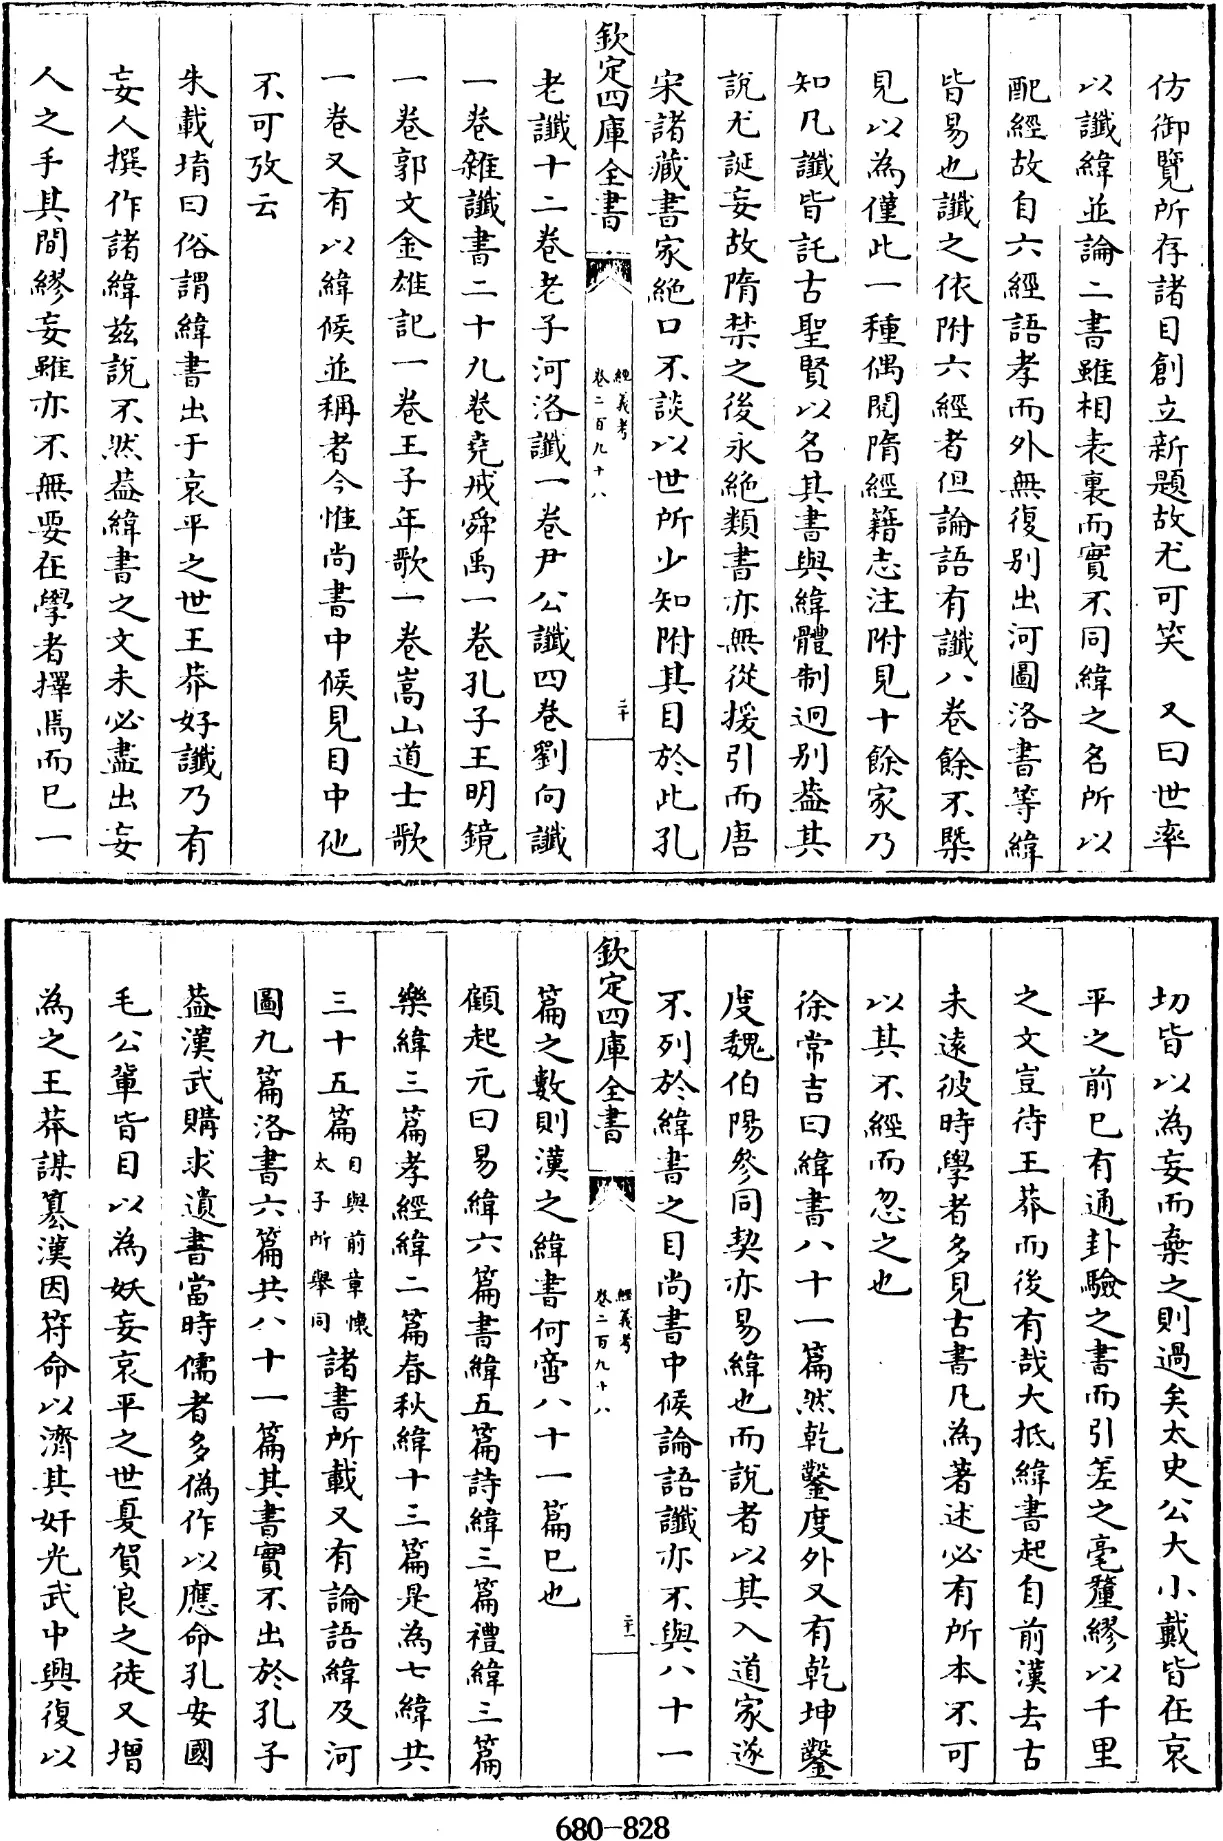 仿御覽所存諸目創立新題故尤可笑　又曰世率
以讖緯並論二書雖相表裏而實不同緯之名所以
配經故自六經語孝而外無復别出河圖洛書等緯
皆易也讖之依附六經者但論語有讖八卷餘不槩
見以為僅此一種偶閱隋經籍志注附見十餘家乃
知凡讖皆託古聖賢以名其書與緯體制迥别葢其
說尤誕妄故隋禁之後永絶類書亦無從援引而唐
宋諸藏書家絶口不談以世所少知附其目於此孔
欽定四庫全書
經義考
卷二百九十八
二十
老讖十二卷老子河洛讖一卷尹公讖四卷劉向讖
一卷雜讖書二十九卷堯戒舜禹一卷孔子王明鏡
一卷郭文金雄記一卷王子年歌一卷嵩山道士歌
一卷又有以緯候並稱者今惟尚書中候見目中他
不可攷云
朱載堉曰俗謂緯書出于哀平之世王莽好讖乃有
妄人撰作諸緯兹說不然葢緯書之文未必盡出妄
人之手其間繆妄雖亦不無要在學者擇焉而已一
切皆以為妄而棄之則過矣太史公大小戴皆在哀
平之前已有通卦驗之書而引差之毫釐繆以千里
之文豈待王莽而後有哉大抵緯書起自前漢去古
未逺彼時學者多見古書凡為著述必有所本不可
以其不經而忽之也
徐常吉曰緯書八十一篇然乾鑿度外又有乾坤鑿
度魏伯陽參同契亦易緯也而說者以其入道家遂
不列於緯書之目尚書中候論語讖亦不與八十一
欽定四庫全書
經義考
卷二百九十八
二十一
篇之數則漢之緯書何啻八十一篇已也
顧起元曰易緯六篇書緯五篇詩緯三篇禮緯三篇
樂緯三篇孝經緯二篇春秋緯十三篇是為七緯共
三十五篇目與前章懷太子所舉同諸書所載又有論語緯及河
圖九篇洛書六篇共八十一篇其書實不出於孔子
葢漢武購求遺書當時儒者多偽作以應命孔安國
毛公輩皆目以為妖妄哀平之世夏賀良之徒又增
為之王莽謀簒漢因符命以濟其奸光武中興復以
680-828